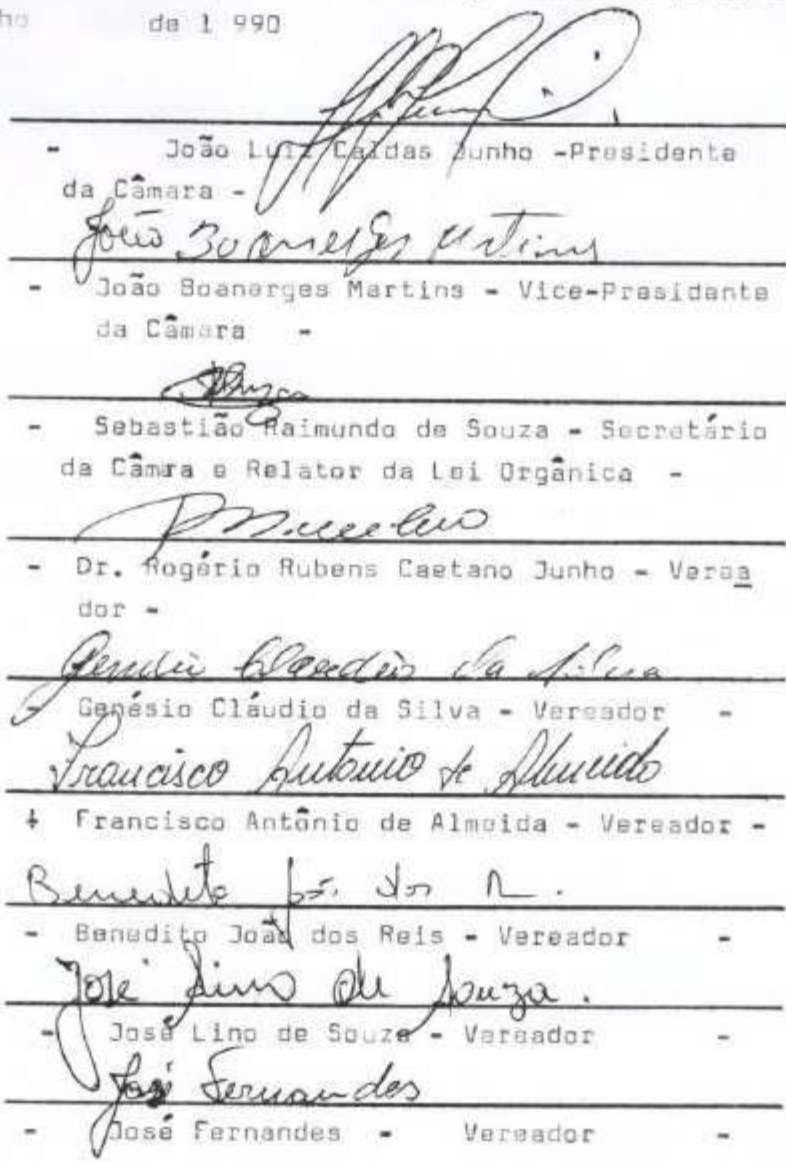 ho de 1 990
- João Luiz Caldas Junho -Presidente
da Câmara -
João Boanerges Martins
- João Boanerges Martins - Vice-Presidente
da Câmara -
- Sebastião Raimundo de Souza - Secretário
da Câmra e Relator da Lei Orgânica -
- Dr. Rogério Rubens Caetano Junho - Verea
dor -
Genésio Claudio da Silva
- Genésio Cláudio da Silva - Vereador -
Francisco Antonio de Almeida
- Francisco Antônio de Almeida - Vereador -
Benedito João dos R.
- Benedito João dos Reis - Vereador -
José Lino de Souza.
- José Lino de Souza - Vereador -
José Fernandes
- José Fernandes - Vereador -